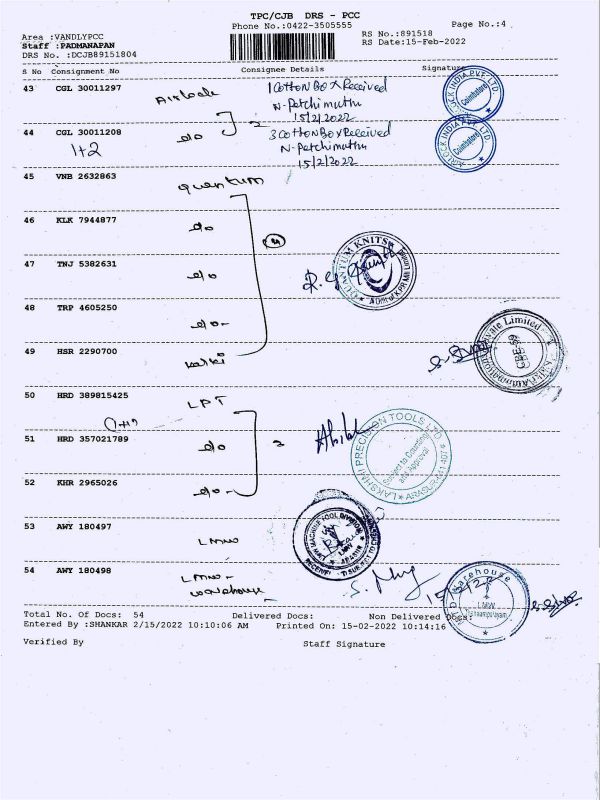 TPC/CJB DRS - PCC
Phone No.:0422-3505555
Page No.:4
Area :VANDLYPCC
Staff :PADMANAPAN
DRS No. :DCJB89151804
RS No.:891518
RS Date:15-Feb-2022
S No Consignment No Consignee Details Signature
43 CGL 30011297
1 Cotton Box Received
N. Petchimuthu
15/2/2022
44 CGL 30011208 do 2
1+2
3 Cotton Box Received
N. Petchimuthu
15/2/2022
AIRLOCK INDIA PVT. LTD.
Coimbatore
AIRLOCK INDIA PVT. LTD.
Coimbatore
45 VNB 2632863 Quantum
46 KLK 7944877 do
47 TNJ 5382631 do
QUANTUM KNITS
48 TRP 4605250 do
49 HSR 2290700
50 HRD 389815425 LPT
51 HRD 357021789 do
LAKSHMI PRECISION TOOLS LTD.
Subject to Counting
and Approval
ARASUR-641 407
52 KHR 2965026 do
53 AWY 180497 LMW
MACHINE TOOL DIVISION
54 AWY 180498 LMW -
warehouse
Warehouse
LMW
Total No. Of Docs: 54 Delivered Docs: Non Delivered Docs:
Entered By :SHANKAR 2/15/2022 10:10:06 AM Printed On: 15-02-2022 10:14:16
Verified By Staff Signature